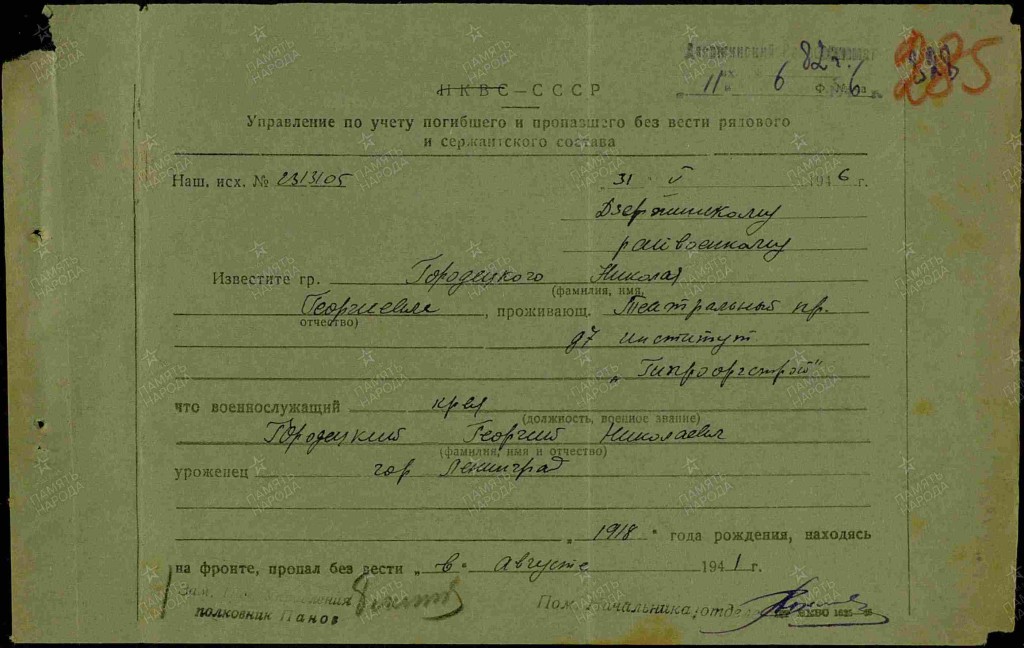 82 г.
285
11 6 6
НКВС–СССР
Управление по учету погибшего и пропавшего без вести рядового
и сержантского состава
Наш. исх. № 2313105 „31" V 1946 г.
Дзержинскому
райвоенкому
Известите гр. Городецкого Николая
(фамилия, имя,
Георгиевича, проживающ. Театральный пр.
отчество)
д7 институт
„Гипрооргстрой"
что военнослужащий кр-ец
(должность, военное звание)
Городецкий Георгий Николаевич
(фамилия, имя и отчество)
уроженец гор Ленинград
„1918" года рождения, находясь
на фронте, пропал без вести „в" августе 1941 г.
Зам. Управления
полковник Панов
Пом. Начальника, отд
ПАМЯТЬ НАРОДА